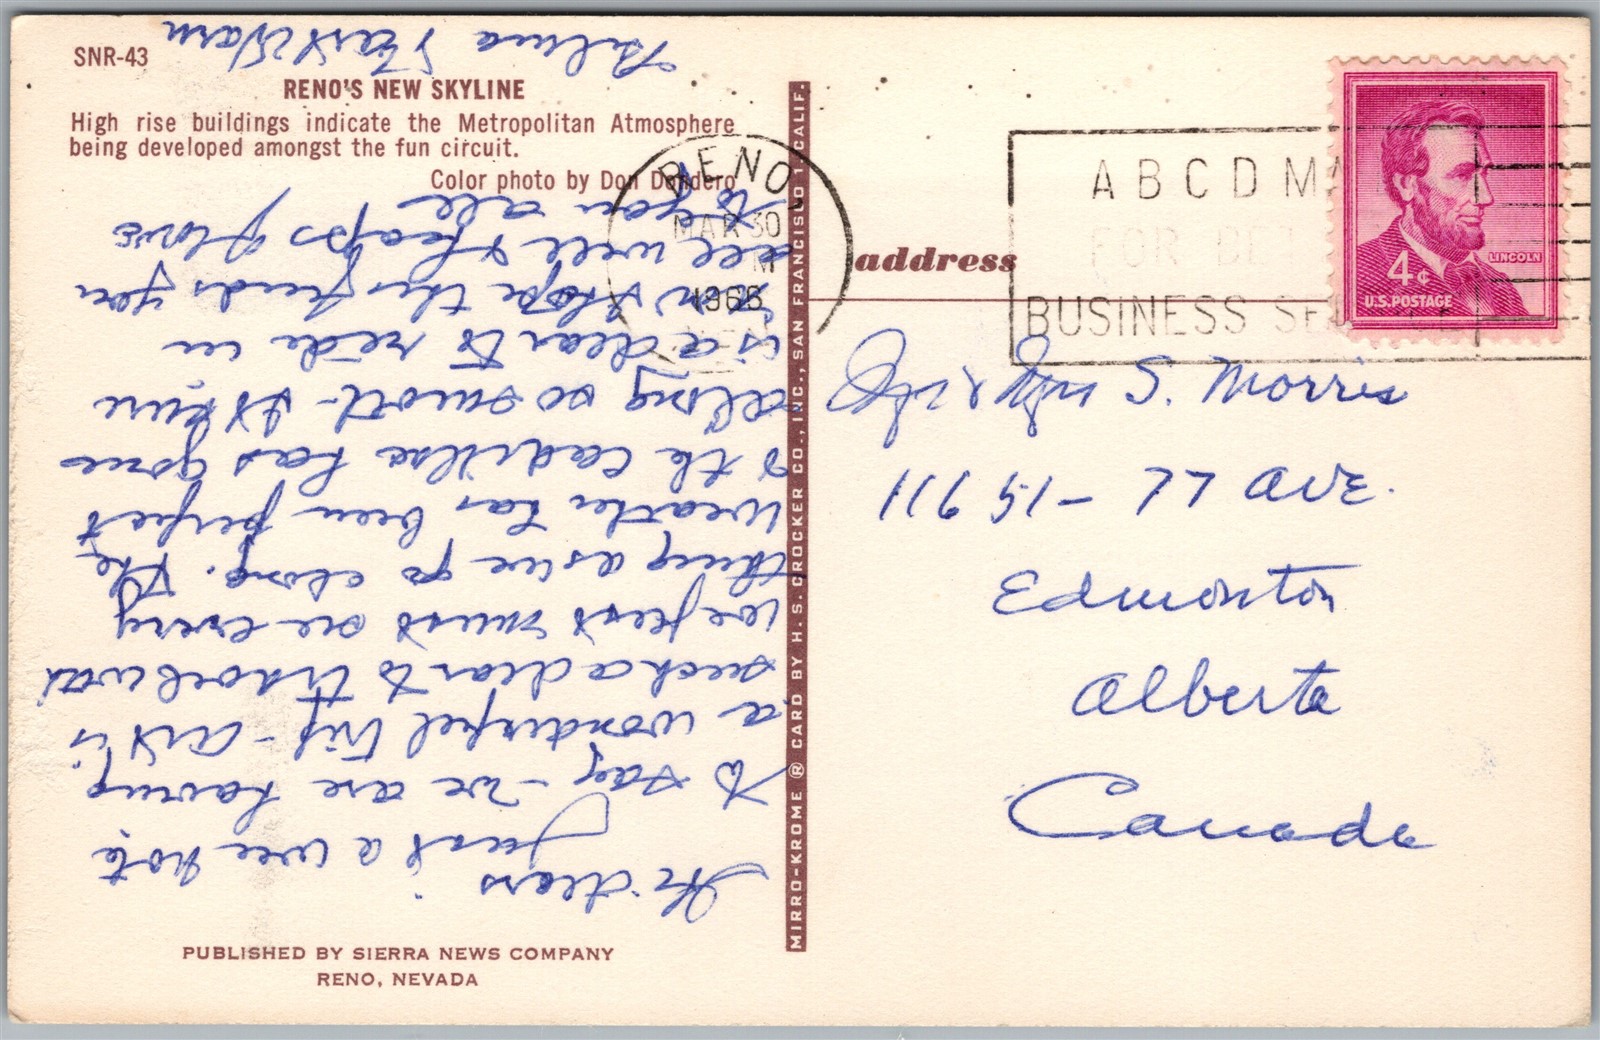 SNR-43
RENO'S NEW SKYLINE
High rise buildings indicate the Metropolitan Atmosphere
being developed amongst the fun circuit.
Color photo by Don Dondero
Hi dears
just a wee note
to say - we are having
a wonderful trip - Art is
such a dear to travel with
we just must see every
thing as we go along. The
weather has been perfect
& the Cadillac has gone
along so smooth - It sure
is a dear to ride in
Hope this finds you
all well & heaps love
to you all
Art
PUBLISHED BY SIERRA NEWS COMPANY
RENO, NEVADA
MIRRO-KROME ® CARD BY H. S. CROCKER CO., INC., SAN FRANCISCO 1, CALIF.
RENO,
MAR 30
M
1966
A B C D M
FOR BET
BUSINESS SE
LINCOLN
4¢
U.S. POSTAGE
address
Mr & Mrs S. Morris
11651 - 77 Ave.
Edmonton
Alberta
Canada